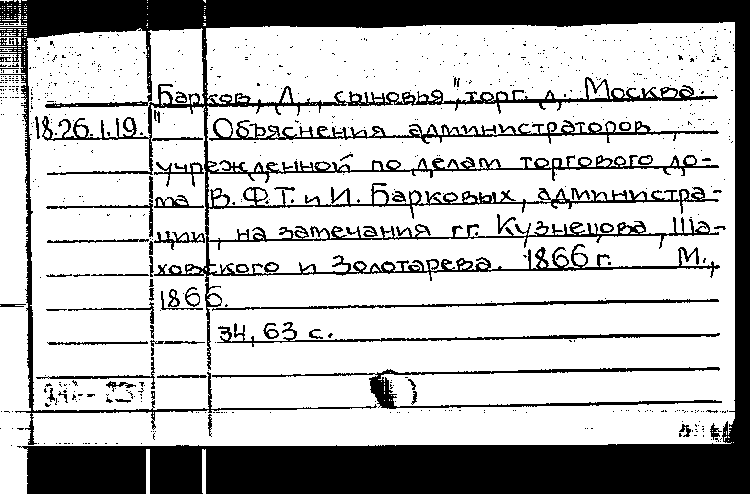 Барков, Д., сыновья", торг. д. Москва.
18.26.1.19. " Объяснения администраторов,
учрежденной по делам торгового до-
ма В.Ф.Т. и И. Барковых, администра-
ции, на замечания гг. Кузнецова, Ша-
ховского и Золотарева. 1866 г. М.,
1866.
34, 63 с.